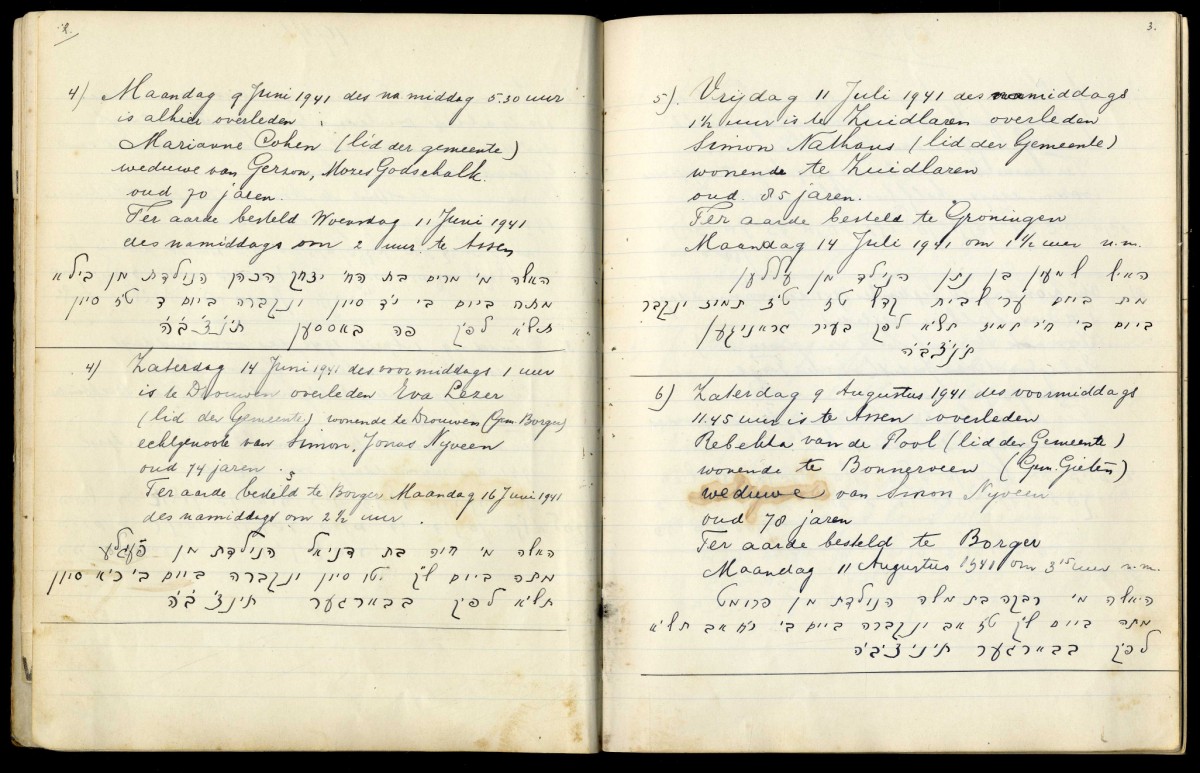 2.
4) Maandag 9 Juni 1941 des namiddag 5.30 uur
is alhier overleden :
Marianne Cohen (lid der gemeente)
weduwe van Gerson, Mozes Godschalk.
oud 70 jaren.
Ter aarde besteld Woensdag 11 Juni 1941
des namiddags om 2 uur te Assen
האשה מ' מרים בת הח' יצחק הכהן הנולדת מן בילא
מתה ביום ב' י"ד סיון ונקברה ביום ד' ט"ז סיון
תש"א לפ"ק פה באססען ת'נ'צ'ב'ה'
4) Zaterdag 14 Juni 1941 des voormiddags 1 uur
is te Drouwen overleden Eva Lezer
(lid der Gemeente) wonende te Drouwen (Gem. Borger)
echtgenoote van Simon, Jonas Nyveen
oud 74 jaren.
Ter aarde besteld te Borger Maandag 16 Juni 1941
des namiddags om 2½ uur.
האשה מ' חוה בת דניאל הנולדת מן
מתה ביום ש"ק סיון ונקברה ביום ב' כ"א סיון
תש"א לפ"ק בבארגער ת'נ'צ'ב'ה'
3.
5) Vrijdag 11 Juli 1941 des namiddags
1½ uur is te Zuidlaren overleden
Simon Nathans (lid der Gemeente)
wonende te Zuidlaren
oud. 85 jaren.
Ter aarde besteld te Groningen
Maandag 14 Juli 1941 om 1½ uur n.m.
האיש שמעון בן נתן הנולד מן
מת ביום ער' שבית קדש ט"ז תמוז ונקבר
ביום ב' תמוז תש"א לפ"ק בעיר גראנינגען
ת'נ'צ'ב'ה'
6) Zaterdag 9 Augustus 1941 des voormiddags
11.45 uur is te Assen overleden
Rebekka van de Pool (lid der Gemeente)
wonende te Bonnerveen (Gem. Gieten)
weduwe van Simon Nyveen
oud 78 jaren
Ter aarde besteld te Borger
Maandag 11 Augustus 1941 om 3¹⁵ uur n.m.
האשה מ' רבקה בת משה הנולדת מן פרומט
מתה ביום ש"ק ט"ז אב ונקברה ביום ב' י"ח אב תש"א
לפ"ק בבארגער ת'נ'צ'ב'ה'